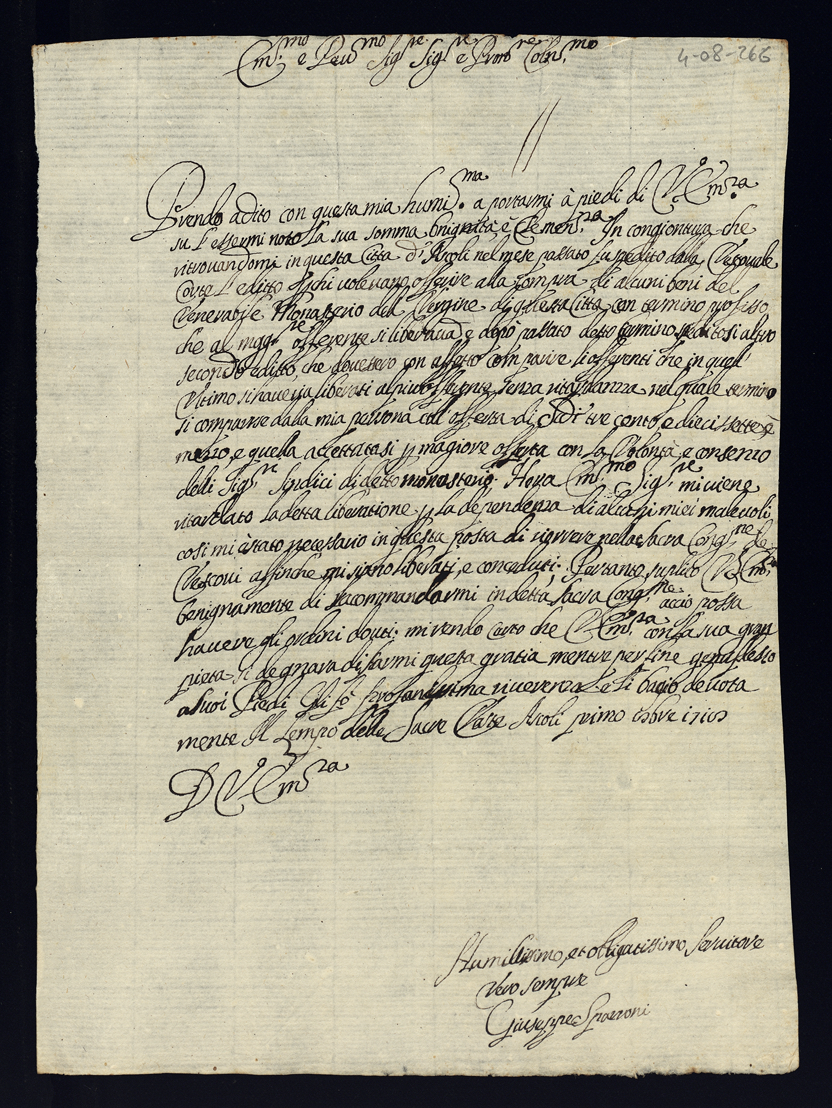 4-08-266
Em.mo e Reu.mo Sig.re Sig.re e Pron.re Coln.mo
Prendo adito con questa mia humil.ma a portarmi à piedi di V. Em.za
su l'essermi noto la sua somma benignità è Clemen.za. In congiontura che
ritrovandomi in questa Città d'Ascoli nel mese passato fu spedito dalla Vescovale
Corte l'editto di chi volessero offerire alla compra di alcuni beni del
Venerabile Monasterio del Vergine di questa Città con termino prefisso
che al magg.re offerente si liberava, e dopò passato detto termino
secondo editto, che dovessero con affetto comparire li offerenti che in quell'
Ultimo si haveria liberati al più offerente senza ritardanza nel quale termino
si comparse dalla mia persona col offerta di Scudi tre cento, e diecissette è
mezzo, e quella accettatasi p maggiore offerta con la Volontà, e consenzo
delli Sig.ri Sindici di detto monasterio. Hora Em.mo Sig.re mi viene
ritardato la detta liberatione p la dependenza di alcuni miei malevoli
così mi è stato necessario in questa posta di ricorrere nella Sacra Cong.ne de
Vescovi affinche mi siano liberati, e conceduti. Pertanto suplico V. Em.za
benignamente di raccomandarmi in detta Sacra Cong.ne acciò possa
havere gli ordini douti. mi rendo certo che V. Em.za con la sua gran
pietà si degnarà di farmi questa gratia mentre per fine
a suoi Piedi Gli fò profondissima riverenza e li bagio devota
mente Il Lempo delle Sacre Veste Ascoli primo
D V. Em.za
Humilissimo, et obligatissimo Servitore
Vero sempre
Giuseppe Sparroni